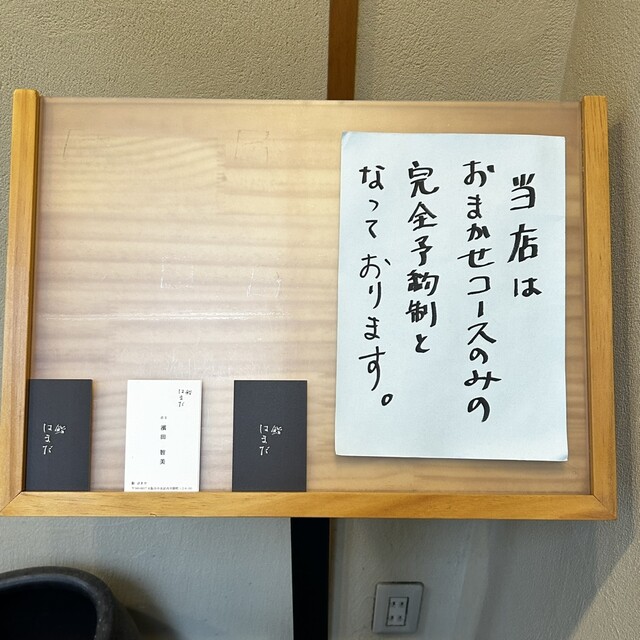 当店は
おまかせコースのみの
完全予約制と
なっております。
鮨
はまだ
鮨
はまだ
店主
濱田 智美
鮨 はまだ
鮨
はまだ